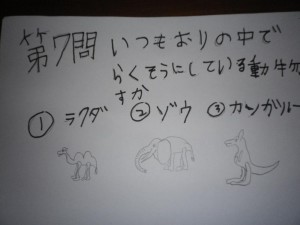 第7問 いつもおりの中で
らくそうにしている動物
すか
① ラクダ ② ゾウ ③ カンガルー